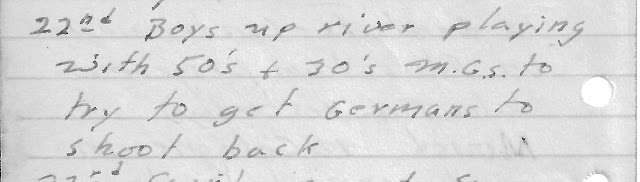 22nd Boys up river playing
with 50's + 30's M.G.s. to
try to get Germans to
shoot back